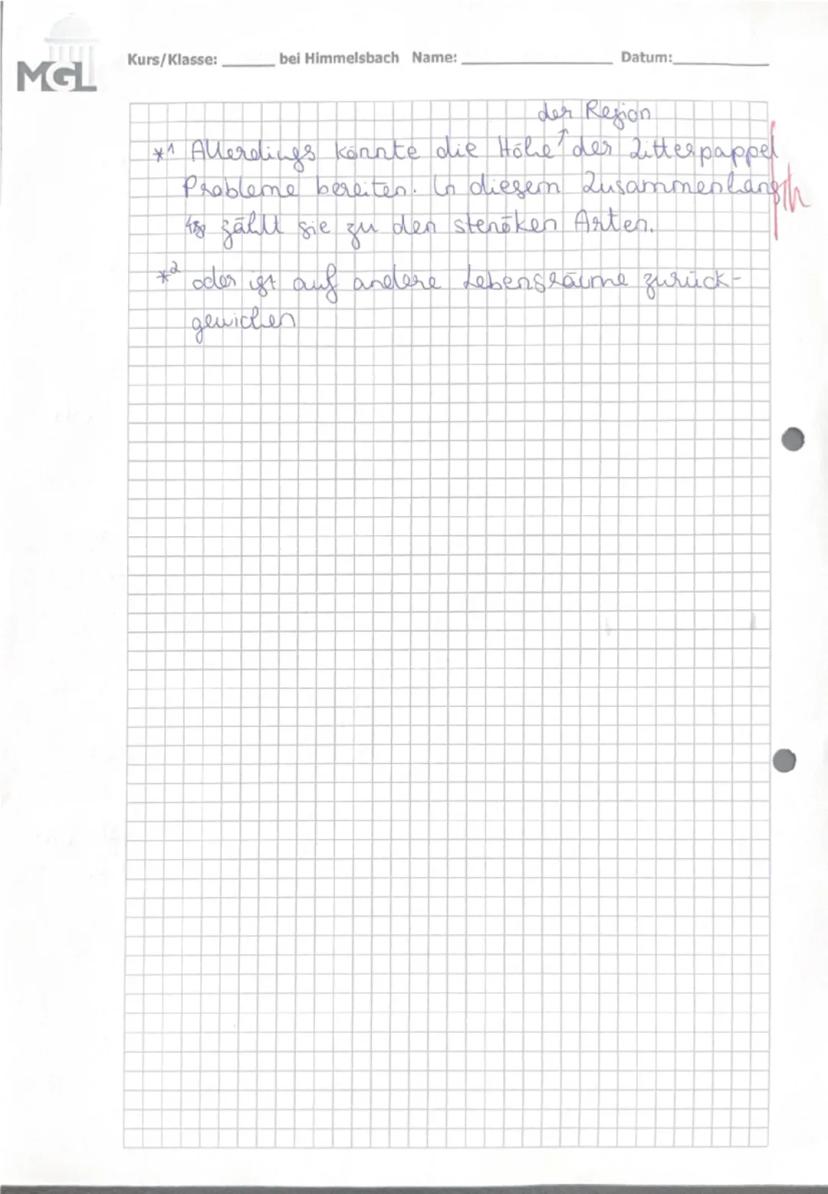 MGL
Kurs/Klasse: ______ bei Himmelsbach Name: ____________ Datum: ________
der Region
*1 Allerdings könnte die Höhe↑ der Zitterpappel
Probleme bereiten. In diesem Zusammenhang
zählt sie zu den stenöken Arten.
*2 oder ist auf andere Lebensräume zurück-
gewichen